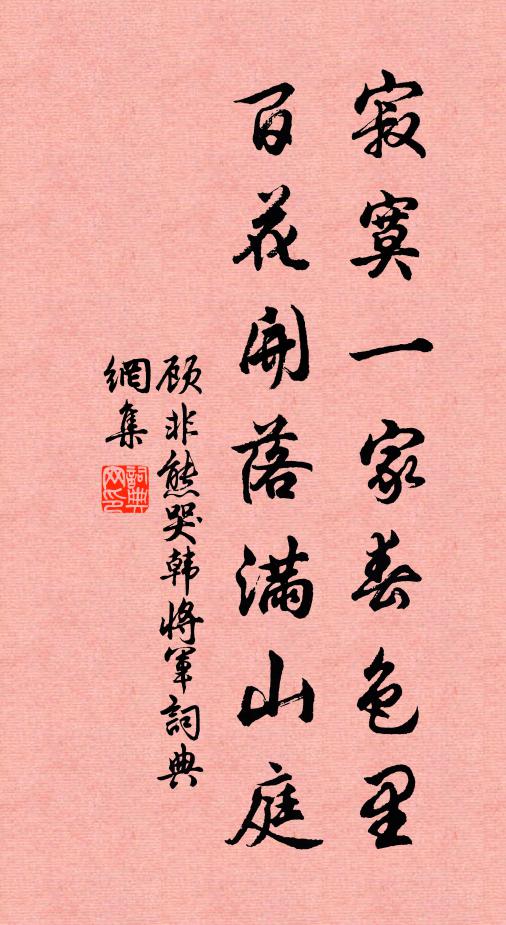 寂寞一家春色里
百花開落满山庭
顾非熊哭韩將軍詞典
網集
詞典
网印